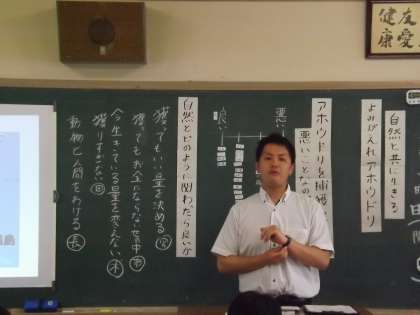 友愛
健康
自然と共に生きる
よみがえれ アホウドリ
アホウドリを捕獲
悪いことなの
悪い
良い
自然とどのように関わったら良いか
獲ってもいい量を決める
獲ってもお金にならない世の中
今生きている量を変えない
獲りすぎない
動物と人間をわける